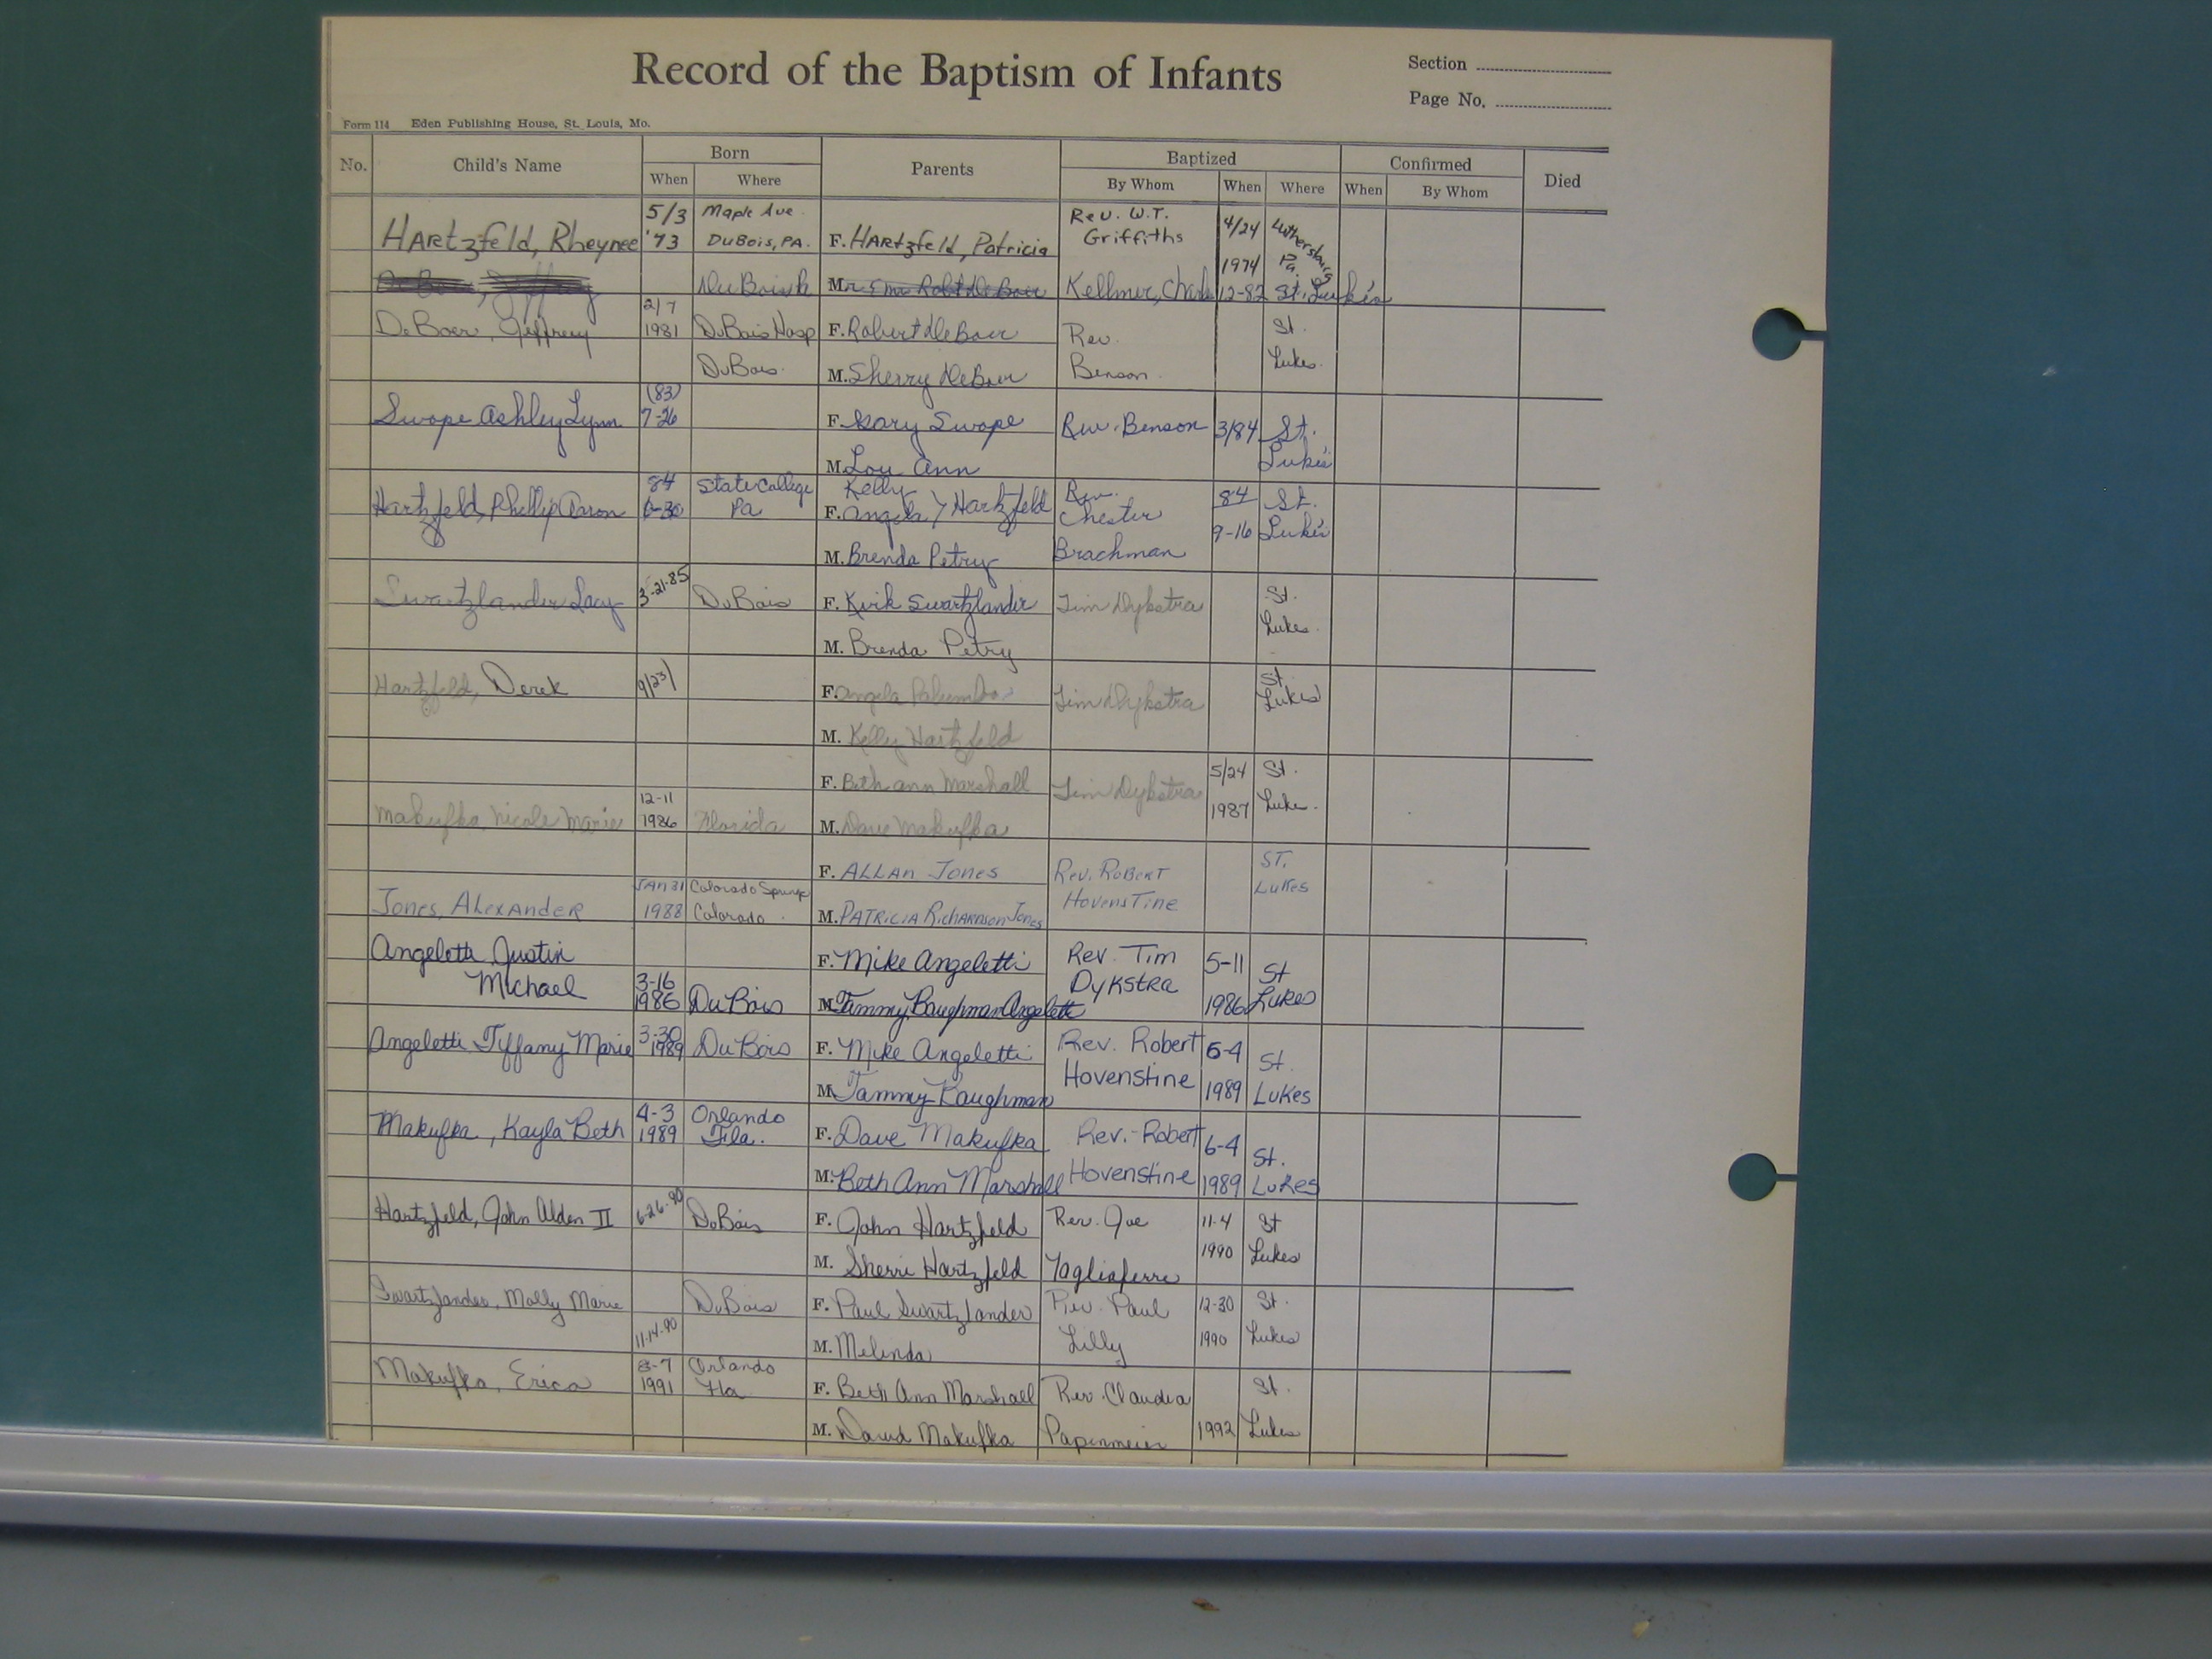 Record of the Baptism of Infants
Section
Page No.
Form 114 Eden Publishing House, St. Louis, Mo.
No. Child's Name Born Parents Baptized Confirmed Died
When Where By Whom When Where When By Whom
5/3 Maple Ave. Rev. W.T. 4/24 Luthersburg
HARtzfeld, Rheynee '73 DuBois, PA. F. HARtzfeld, Patricia Griffiths 1974 Pa.
De Boer, Jeffrey DuBois Pa M. Mr & Mrs Robt De Boer Kellmer, 12-82 St. Luke's
2/7
DeBoer, Jeffrey 1981 DuBois Hosp F. Robert DeBoer Rev. St.
DuBois. M. Sherry DeBoer Benson. Lukes.
(83)
Swope Ashley Lynn 7-26 F. Gary Swope Rev. Benson 3/84 St.
M. Lou Ann Luke's
84 State College Kelly Rev. 84 St.
Hartzfeld, Phillip Aaron 6-30 Pa F. Angela } Hartzfeld Chester 9-16 Luke's
M. Brenda Petry Brachman
Swartzlander Lacy 3-21-85 DuBois F. Kirk Swartzlander Tim Dykstra St.
M. Brenda Petry Lukes.
Hartzfeld, Derek 9/23/ F. Angela Palumbo Tim Dykstra St.
M. Kelly Hartzfeld Lukes
F. Beth Ann Marshall Tim Dykstra 5/24 St.
12-11
Makufka, Nicole Marie 1986 Florida M. Dave Makufka 1987 Luke.
F. ALLAN JONES Rev. RoBeRT ST.
JAN 31 Colorado Springs LuKes
Jones, AlexANdeR 1988 Colorado. M. PATRICIA RichARdson Jones HovensTine
Angeletti Justin F. Mike Angeletti Rev. Tim 5-11 St
Michael 3-16 DYKstRa
1986 DuBois M. Tammy Baughman Angeletti 1986 LuKes
Angeletti Tiffany Marie 3-30 1989 DuBois F. Mike Angeletti Rev. Robert 6-4 St.
M. Tammy Baughman Hovenstine 1989 LuKes
Makufka, Kayla Beth 4-3 Orlando F. Dave Makufka Rev. Robert 6-4 St.
1989 Fla. M. Beth Ann Marshall Hovenstine 1989 LuKes
Hartzfeld, John Alden II 6-26-90 DuBois F. John Hartzfeld Rev. Joe 11-4 St
M. Sherri Hartzfeld Tagliaferre 1990 Lukes
Swartzlander, Molly Marie DuBois F. Paul Swartzlander Rev. Paul 12-30 St.
11-14-90 M. Melinda Lilly 1990 Lukes
Makufka, Erica 8-7 Orlando
1991 Fla F. Beth Ann Marshall Rev. Claudia St.
M. David Makufka Papenmeier 1992 Lukes